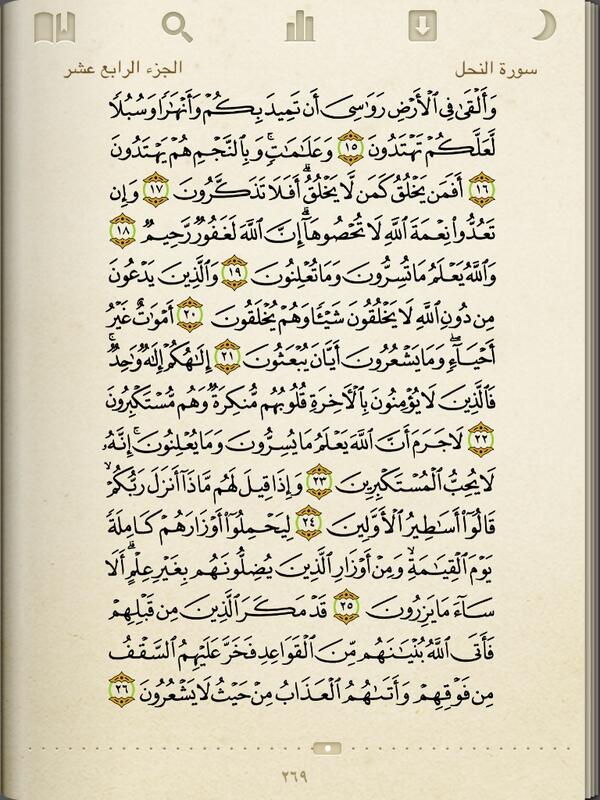 سورة النحل
الجزء الرابع عشر
وَأَلْقَىٰ فِى ٱلْأَرْضِ رَوَٰسِىَ أَن تَمِيدَ بِكُمْ وَأَنْهَٰرًا وَسُبُلًا
لَّعَلَّكُمْ تَهْتَدُونَ ١٥ وَعَلَٰمَٰتٍۚ وَبِٱلنَّجْمِ هُمْ يَهْتَدُونَ
١٦ أَفَمَن يَخْلُقُ كَمَن لَّا يَخْلُقُۗ أَفَلَا تَذَكَّرُونَ ١٧ وَإِن
تَعُدُّوا۟ نِعْمَةَ ٱللَّهِ لَا تُحْصُوهَآۗ إِنَّ ٱللَّهَ لَغَفُورٌ رَّحِيمٌ ١٨
وَٱللَّهُ يَعْلَمُ مَا تُسِرُّونَ وَمَا تُعْلِنُونَ ١٩ وَٱلَّذِينَ يَدْعُونَ
مِن دُونِ ٱللَّهِ لَا يَخْلُقُونَ شَيْـًٔا وَهُمْ يُخْلَقُونَ ٢٠ أَمْوَٰتٌ غَيْرُ
أَحْيَآءٍۖ وَمَا يَشْعُرُونَ أَيَّانَ يُبْعَثُونَ ٢١ إِلَٰهُكُمْ إِلَٰهٌ وَٰحِدٌۚ
فَٱلَّذِينَ لَا يُؤْمِنُونَ بِٱلْـَٔاخِرَةِ قُلُوبُهُم مُّنكِرَةٌ وَهُم مُّسْتَكْبِرُونَ
٢٢ لَا جَرَمَ أَنَّ ٱللَّهَ يَعْلَمُ مَا يُسِرُّونَ وَمَا يُعْلِنُونَۚ إِنَّهُۥ
لَا يُحِبُّ ٱلْمُسْتَكْبِرِينَ ٢٣ وَإِذَا قِيلَ لَهُم مَّاذَآ أَنزَلَ رَبُّكُمْۙ
قَالُوٓا۟ أَسَٰطِيرُ ٱلْأَوَّلِينَ ٢٤ لِيَحْمِلُوٓا۟ أَوْزَارَهُمْ كَامِلَةً
يَوْمَ ٱلْقِيَٰمَةِۙ وَمِنْ أَوْزَارِ ٱلَّذِينَ يُضِلُّونَهُم بِغَيْرِ عِلْمٍۗ أَلَا
سَآءَ مَا يَزِرُونَ ٢٥ قَدْ مَكَرَ ٱلَّذِينَ مِن قَبْلِهِمْ
فَأَتَى ٱللَّهُ بُنْيَٰنَهُم مِّنَ ٱلْقَوَاعِدِ فَخَرَّ عَلَيْهِمُ ٱلسَّقْفُ
مِن فَوْقِهِمْ وَأَتَىٰهُمُ ٱلْعَذَابُ مِنْ حَيْثُ لَا يَشْعُرُونَ ٢٦
٢٦٩